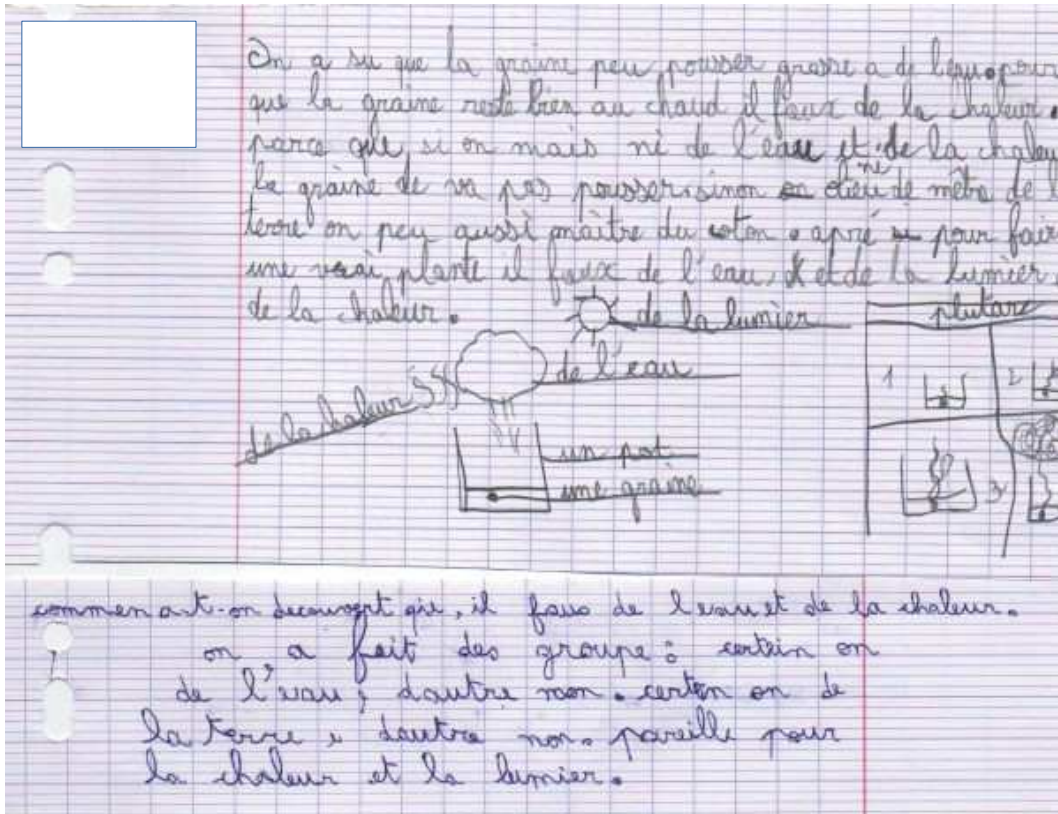 On a su que la graine peu pousser grasse a de l'eau. pour
que la graine reste bien au chaud il faux de la chaleur.
parce que si on mais ni de l'eau et ni de la chaleur
la graine de va pas pousser. sinon dieu de mètre de
terre on peu aussi maître du coton. apré pour fair
une vrai plante il faux de l'eau, et de la lumier,
de la chaleur.
de la lumier
plutare
de l'eau
de la chaleur
un pot
une graine
1
2
3
commen a-t-on decouvert que, il faus de l'eau et de la chaleur.
on a fait des groupe : certain on
de l'eau, dautre non. certen on de
la terre, dautre non. pareille pour
la chaleur et la lumier.